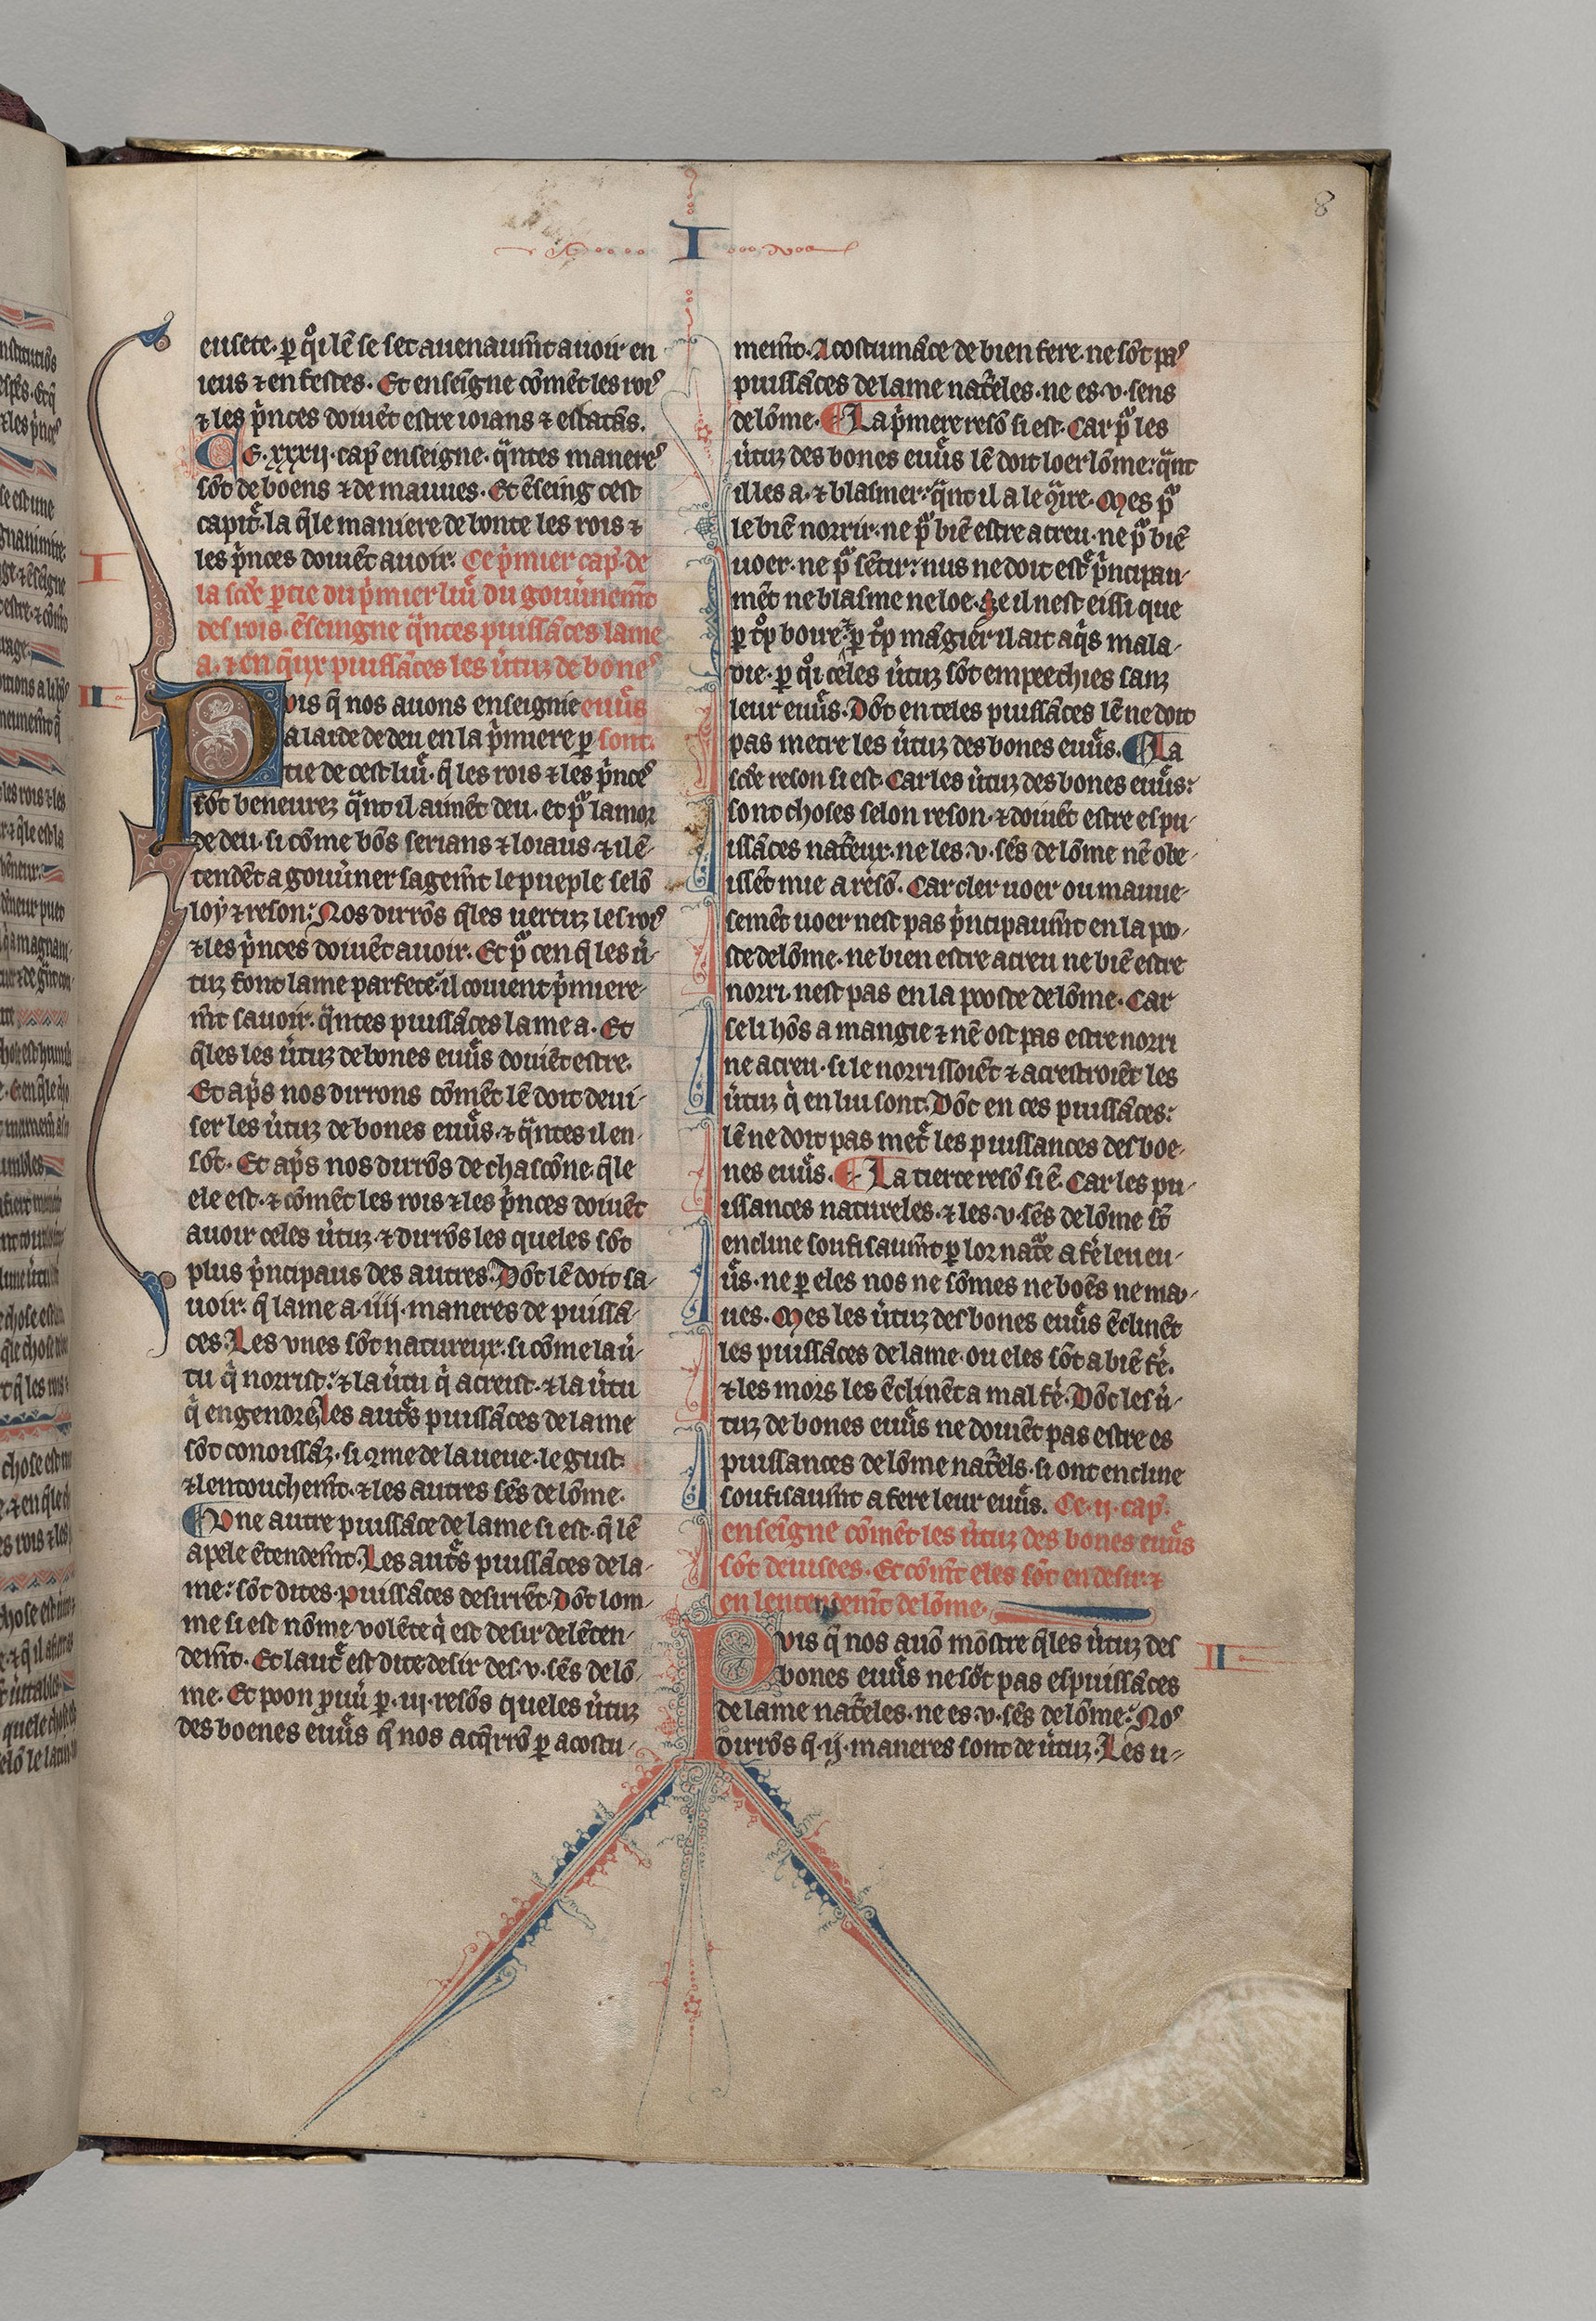 8
I
eusete. ꝑ qͦi lē se set auenaumt̄ auoir en
ieus ⁊ en festes. Et enseigne cōmēt les roiꝰ
⁊ les pͥnces doiuēt estre ioians ⁊ esbatās.
Ce .xxxij. cap̄ enseigne. qͣntes manereꝰ
sōt de boens ⁊ de mauues. Et ēseing cest
capit̄. la qͥle maniere de bonte les rois ⁊
les pͥnces doiuēt auoir. Ce pͥmier cap̄. de
la scde ꝑtie du pͥmier liu̾ du gouu̾nemt̄
des rois. ēseingne qͣntes puissāces lame
a. ⁊ en qͥux puissāces les u̾tuz de boneꝰ
Puis q̄ nos auons enseignie euu̾s
a laide de deu en la pͥmiere ꝑ sont.
tie de cest liu̾. q̄ les rois ⁊ les pͥnceꝰ
sōt beneurez qͣnt il aimēt deu. et pͦ lamor
de deu. si cōme bōs serians ⁊ loiaus. ⁊ il ē-
tendēt a gouu̾ner sagemt̄ le pueple selō
loy ⁊ reson: Nos dirrōs q̄les uertuz les roiꝰ
⁊ les pͥnces doiuēt auoir. Et pͦ cen q̄ les u̾-
tuz font lame parfete: il couient pͥmiere-
mt̄ sauoir. qͣntes puissāces lame a. Et
q̄les les u̾tuz de bones euu̾s doiuēt estre.
Et ap̄s nos dirrons cōmēt lē doit deui-
ser les u̾tuz de bones euu̾s. ⁊ qͣntes il en
sōt. Et ap̄s nos dirrōs de chascōne. q̄le
ele est. ⁊ cōmēt les rois ⁊ les pͥnces doiuēt
auoir celes u̾tuz. ⁊ dirrōs les queles sōt
plus pͥncipaus des autres. Dōt lē doit sa-
uoir. q̄ lame a .iiij. maneres de puissā-
ces. Les vnes sōt natureux: si cōme la u̾-
tu qͥ norrist: ⁊ la u̾tu qͥ acreist. ⁊ la u̾tu
qͥ engendre. les aut̾s puissāces de lame
sōt conoissāz. si ꝯme de la ueue. le gust
⁊ lentouchemt̄. ⁊ les autres sēs de lōme.
Vne autre puissāce de lame si est. q̄ lē
apele ētendemt̄. Les aut̾s puissāces de la-
me: sōt dites. puissāces desirrēt. Dōt lom-
me si est nōme uolēte qͥ est desir de lēten-
demt̄. Et laut̾ est dite desir des .v. sēs de lō-
me. Et poon ꝓuu̾ ꝑ .iij. resōs queles u̾tuz
des boenes euu̾s q̄ nos acq̄rrōs ꝑ acostu-
memt̄. Acostumāce de bien fere. ne sōt paꝰ
puissāces de lame nat̾eles. ne es .v. sens
de lōme. La pͥmere resō si est. Car pͦ les
u̾tuz des bones euu̾s lē doit loer lōme: qͣnt
il les a. ⁊ blasmer: qͣnt il a le ꝯͣire. Mes pͦ
le biē norrir. ne pͦ biē estre acreu. ne pͦ biē
uoer. ne pͦ sētir: nus ne doit est̾ pͥncipau-
mēt ne blasme ne loe. Se il nest eissi que
ꝑ tͦp boire. ⁊ ꝑ tͦp māgier il ait aqͥs mala-
die. ꝑ qͦi celes u̾tuz sōt empeechies sanz
leur euu̾s. Dōt en teles puissāces lē ne doit
pas metre les u̾tuz des bones euu̾s. La
scde reson si est. Car les u̾tuz des bones euu̾s:
sont choses selon reson. ⁊ doiuēt estre es pu-
issāces nat̾eux. ne les .v. sēs de lōme nē obe-
issēt mie a resō. Car cler uoer ou mauue-
semēt uoer nest pas pͥncipaumt̄ en la poo-
ste de lōme. ne bien estre acreu ne biē estre
norri. nest pas en la pooste de lōme. Car
se li hōs a mangie ⁊ nē ost pas estre norri
ne acreu. si le norrissoiēt ⁊ acrestroiēt les
u̾tuz qͥ en lui sont. Dōt en ces puissāces:
lē ne doit pas met̾ les puissances des boe-
nes euu̾s. La tierce resō si ē. Car les pu-
issances natureles. ⁊ les .v. sēs de lōme sōt
encline soufisaumt̄ ꝑ lor nat̾e a fe̾ leu eu-
u̾s. ne ꝑ eles nos ne sōmes ne boēs ne ma-
ues. Mes les u̾tuz des bones euu̾s ēclinēt
les puissāces de lame. ou eles sōt a biē fe̾.
⁊ les mors les ēclinēt a mal fe̾. Dōt les u̾-
tuz de bones euu̾s ne doiuēt pas estre es
puissances de lōme nat̾els. si ont encline
soufisaumt̄ a fere leur euu̾s. Ce .ij. cap̄.
enseigne cōmēt les u̾tuz des bones euu̾s
sōt deuisees. Et cōmt̄ eles sōt en desir. ⁊
en lentendemt̄ de lōme.
Puis q̄ nos auō mōstre q̄les u̾tuz des
bones euu̾s ne sōt pas es puissāces
de lame nat̾eles. ne es .v. sēs de lōme: Noꝰ
dirrōs q̄ .ij. maneres sont de u̾tuz. Les u-
I
II
II